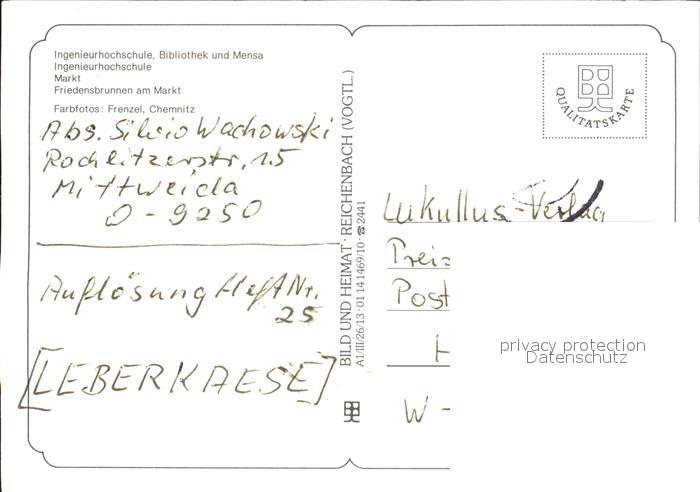 Ingenieurhochschule, Bibliothek und Mensa
Ingenieurhochschule
Markt
Friedensbrunnen am Markt
Farbfotos: Frenzel, Chemnitz
Abs. Silvio Wachowski
Rochlitzerstr. 15
Mittweida
D - 9250
Auflösung Heft Nr.
25
[LEBERKAESE]
BILD UND HEIMAT · REICHENBACH (VOGTL.)
A1/III/26/13 · 01 14 1469/10 · ☎ 2441
QUALITÄTSKARTE
Lukullus-Verlag
Preis
Post
H
W -
privacy protection
Datenschutz